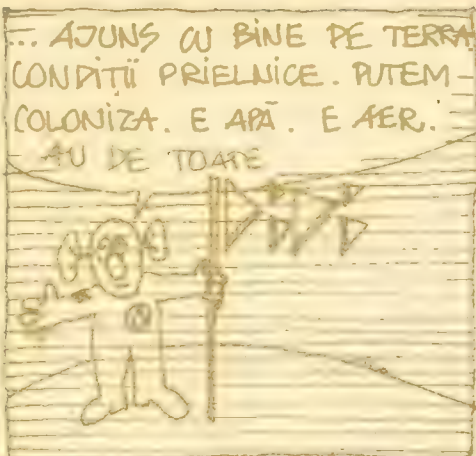 ... AJUNS CU BINE PE TERRA
CONDIȚII PRIELNICE. PUTEM
COLONIZA. E APĂ. E AER.
AU DE TOATE